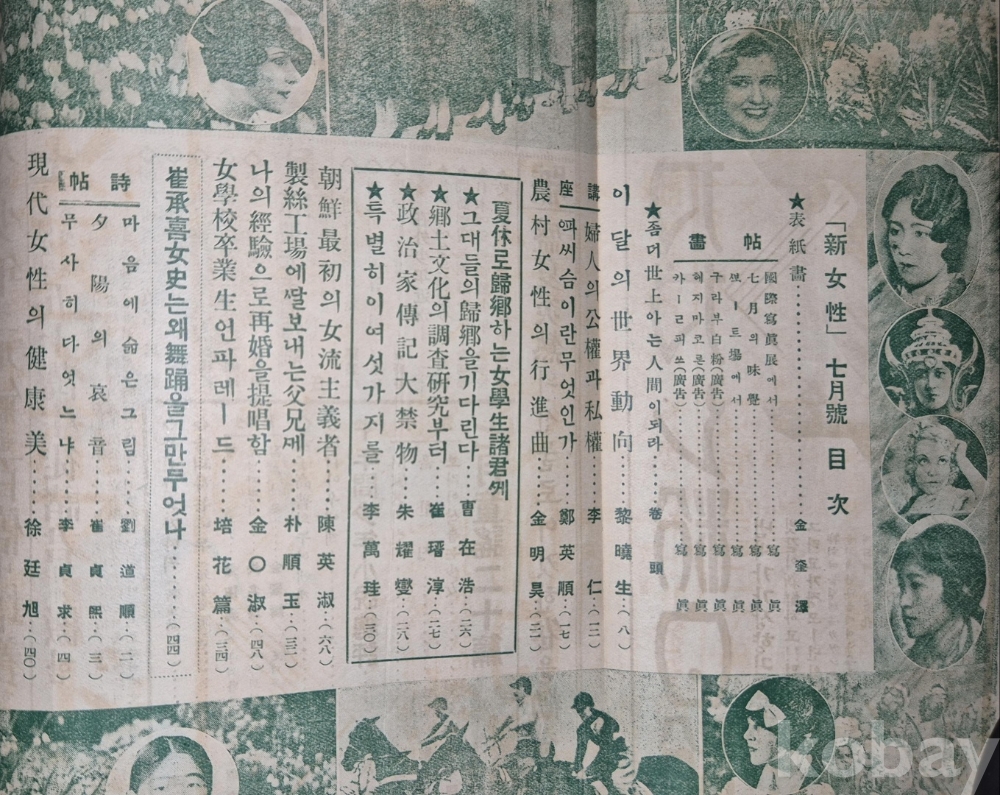 「新女性」七月號 目次
★表紙畫……金奎澤
畫帖
國際寫眞展에서……寫眞
七月의味覺……寫眞
뽀ー트場에서……寫眞
구라부白粉(廣告)……寫眞
헤지마코론(廣告)……寫眞
카ーㄹ피쓰(廣告)……寫眞
★좀더世上아는人間이되라……卷頭
이달의世界動向……黎曉生…(八)
講座
婦人의公權과私權……李仁…(一二)
엑씨슴이란무엇인가……鄭英順…(一七)
農村女性의行進曲……金明昊…(二一)
夏休로歸鄉하는女學生諸君께
★그대들의歸鄉을기다린다……曺在浩…(二六)
★鄉土文化의調査硏究부터……崔瑨淳…(二七)
★政治家傳記大禁物……朱耀燮…(二八)
★특별히이여섯가지를……李萬珪…(三〇)
朝鮮最初의女流主義者……陳英淑…(六八)
製絲工場에딸보내는父兄께……朴順玉…(三二)
나의經驗으로再婚을提唱함……金〇淑…(四八)
女學校卒業生언파레ー드……培花篇…(三四)
崔承喜女史는왜舞踊을그만무엇나…………(四四)
詩帖
마음에숨은그림……劉道順…(二)
夕陽의哀音……崔貞熙…(三)
무사히다엇느냐……李貞求…(四)
現代女性의健康美……徐廷旭…(四〇)
kobay